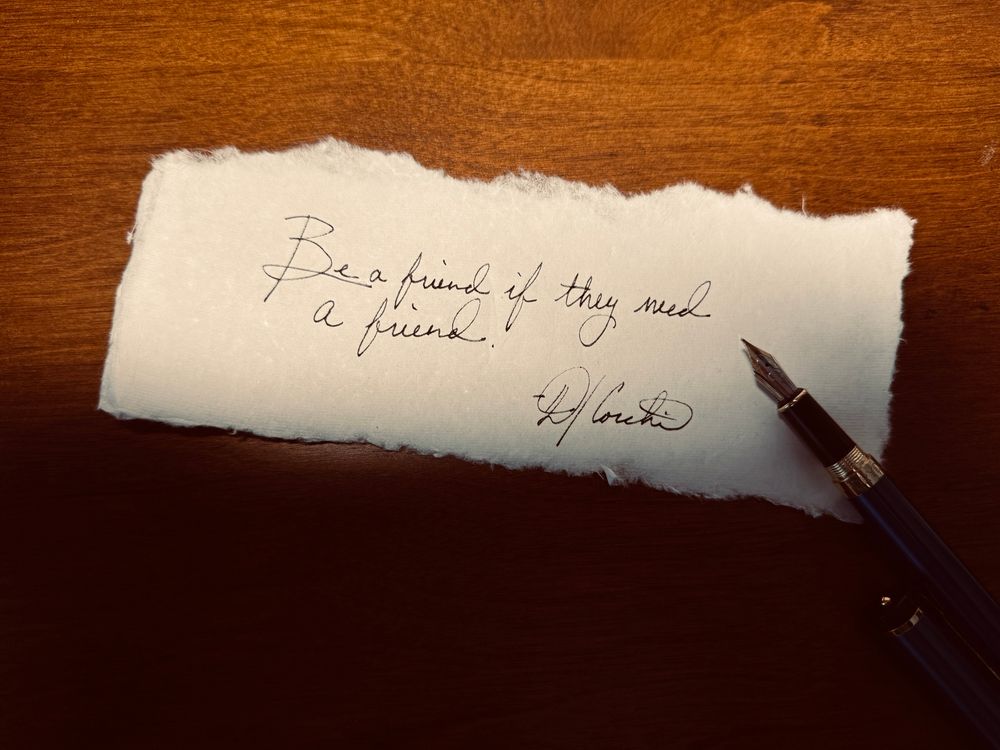 Be a friend if they need
a friend.